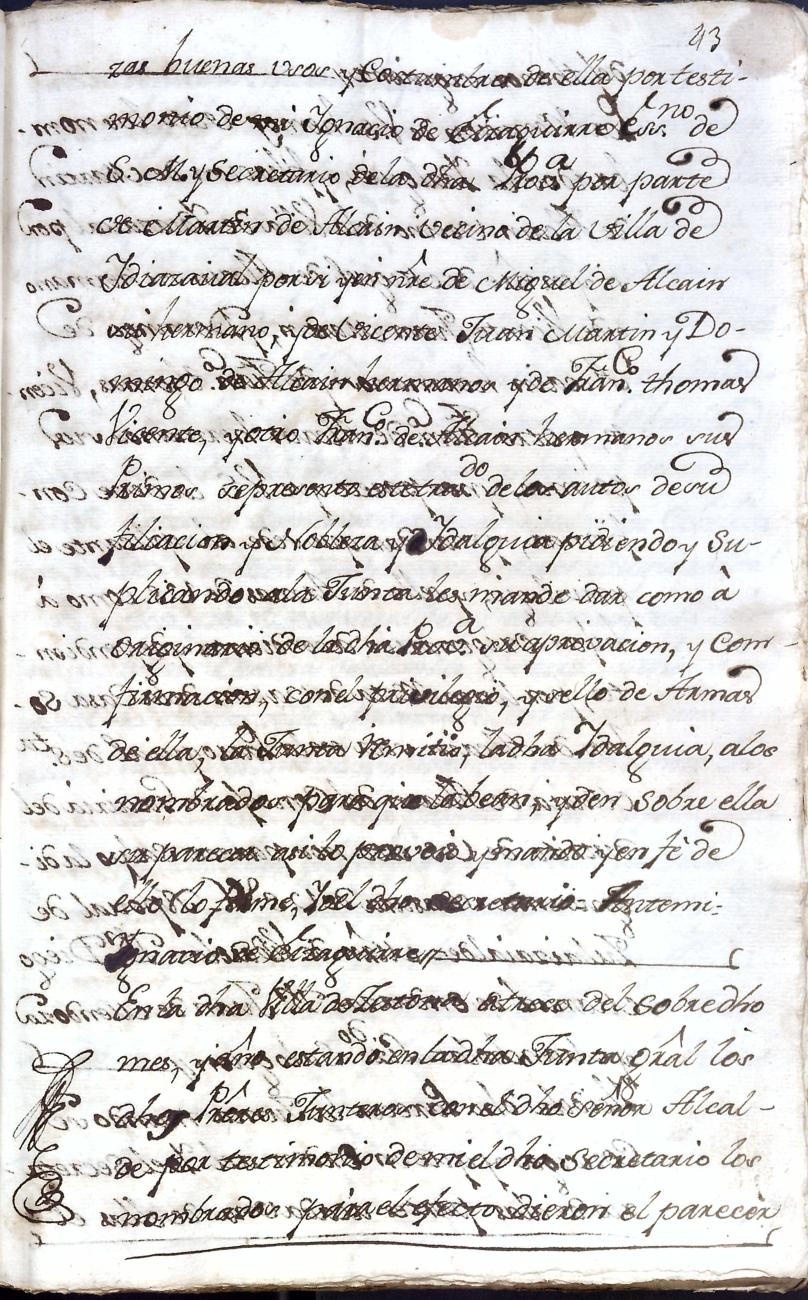 43
zas buenas usos y Costumbres de ella por testi-
monio de mi Ignacio de Eizaguirre Ess.no de
S. M. y Secretario de la dha Proa por parte
de Martin de Alcain vecino de la villa de
Idiazaval por si y en nre de Miguel de Alcain
su hermano, y de Vicente Juan Martin y Do-
mingo de Alcain hermanos y de Fran.co thomas
Vicente, y otro Fran.co de Alcain hermanos sus
Primos represento este tras.do de los autos de su
filiacion y Nobleza y Idalguia pidiendo y Su-
plicando a la Junta les mande dar como à
originarios de la dha Proa su aprovacion, y Com-
firmacion, con el privilegio, y sello de Armas
de ella, la Junta Remitio, la dha Idalguia, a los
nombrados para que la bean, y den sobre ella
su parecer asi lo proveió y mando y en fè de
ello lo firme, Yo el dho secretario = Antemi=
Ignacio de Eizaguirre
En la dha Villa de Zestona a trece del sobre dho
mes, y año estando en la dha Junta gral los
dhos Prores Junteros con el dho Señor Alcal-
de por testimonio de mi el dho Secretario los
nombrados para el efecto dieron el parecer